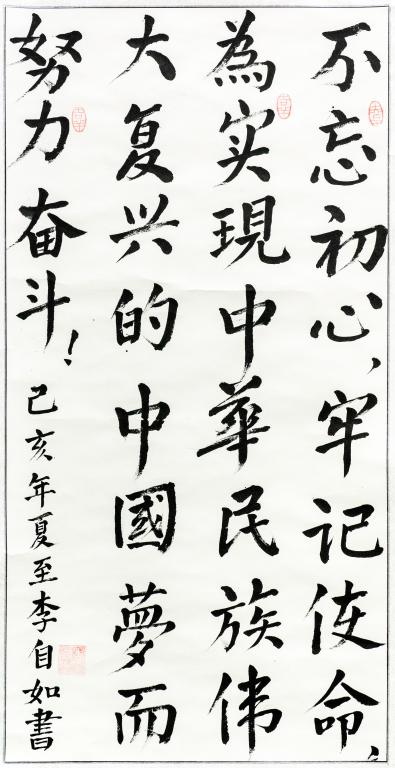 不忘初心，牢记使命，
為实現中華民族伟
大复兴的中國夢而
努力奋斗！
己亥年夏至李自如書